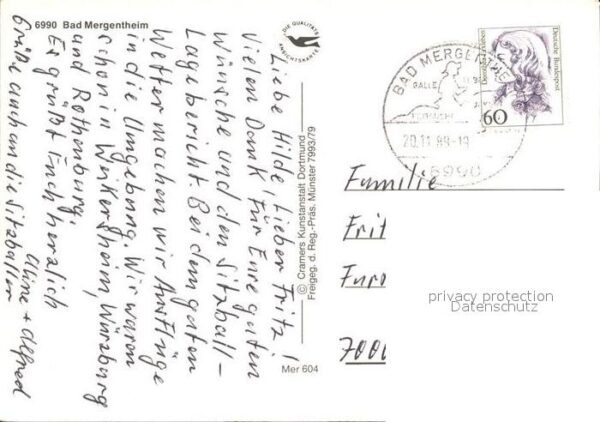 6990 Bad Mergentheim
DIE QUALITÄTS
ANSICHTSKARTE
Liebe Hilde, lieber Fritz!
Vielen Dank für Eure guten
Wünsche und den Sitzball-
Lagebericht. Bei dem guten
Wetter machen wir Ausflüge
in die Umgebung. Wir waren
schon in Weikersheim, Würzburg
und Rothenburg.
Es grüßt Euch herzlich
Aline + Alfred
Grüße auch an die Sitzballer
© Cramers Kunstanstalt Dortmund
Freigeg. d. Reg.-Präs. Münster 7993/79
Mer 604
BAD MERGENTHEIM
GALLE
20.11.89-19
6990
Deutsche Bundespost
60
Familie
Frit
Furo
7000
privacy protection
Datenschutz